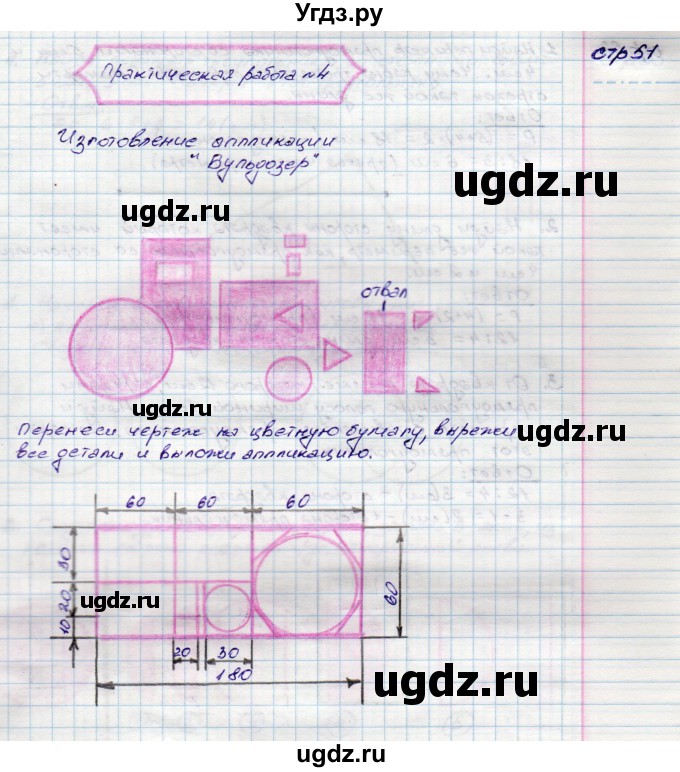 Угдз.ру
стр 51
Практическая работа №4
Изготовление аппликации
"Бульдозер"
ugdz.ru
ugdz.ru
отвал
ugdz.ru
ugdz.ru
Перенеси чертеж на цветную бумагу, вырежи
все детали и выложи аппликацию.
60 60 60
30
20
10
ugdz.ru
60
20 30
180
ugdz.ru
ugdz.ru